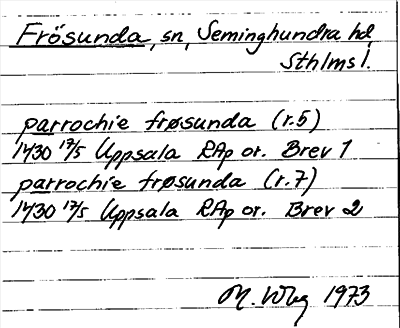 Frösunda, sn, Seminghundra hd,
Sthlms l.
parrochie frøsunda (r.5)
1430 17/5 Uppsala RAp or. Brev 1
parrochie frøsunda (r.7)
1430 17/5 Uppsala RAp or. Brev 2
M. 1973